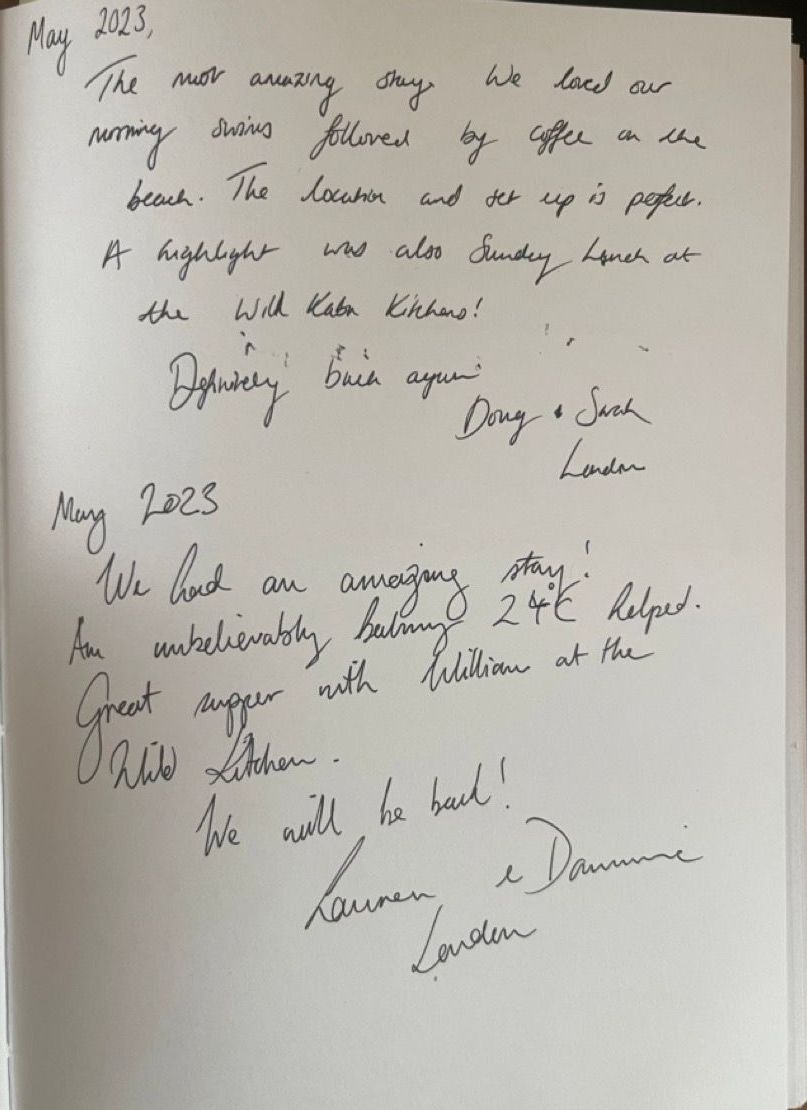 May 2023,
The most amazing stay. We loved our
morning swims followed by coffee on the
beach. The location and set up is perfect.
A highlight was also Sunday Lunch at
the Wild Kitchens!
Definitely back again
Doug & Sarah
London
May 2023
We had an amazing stay!
An unbelievably balmy 24°C helped.
Great supper with William at the
Wild Kitchen.
We will be back!
Lauren &
London